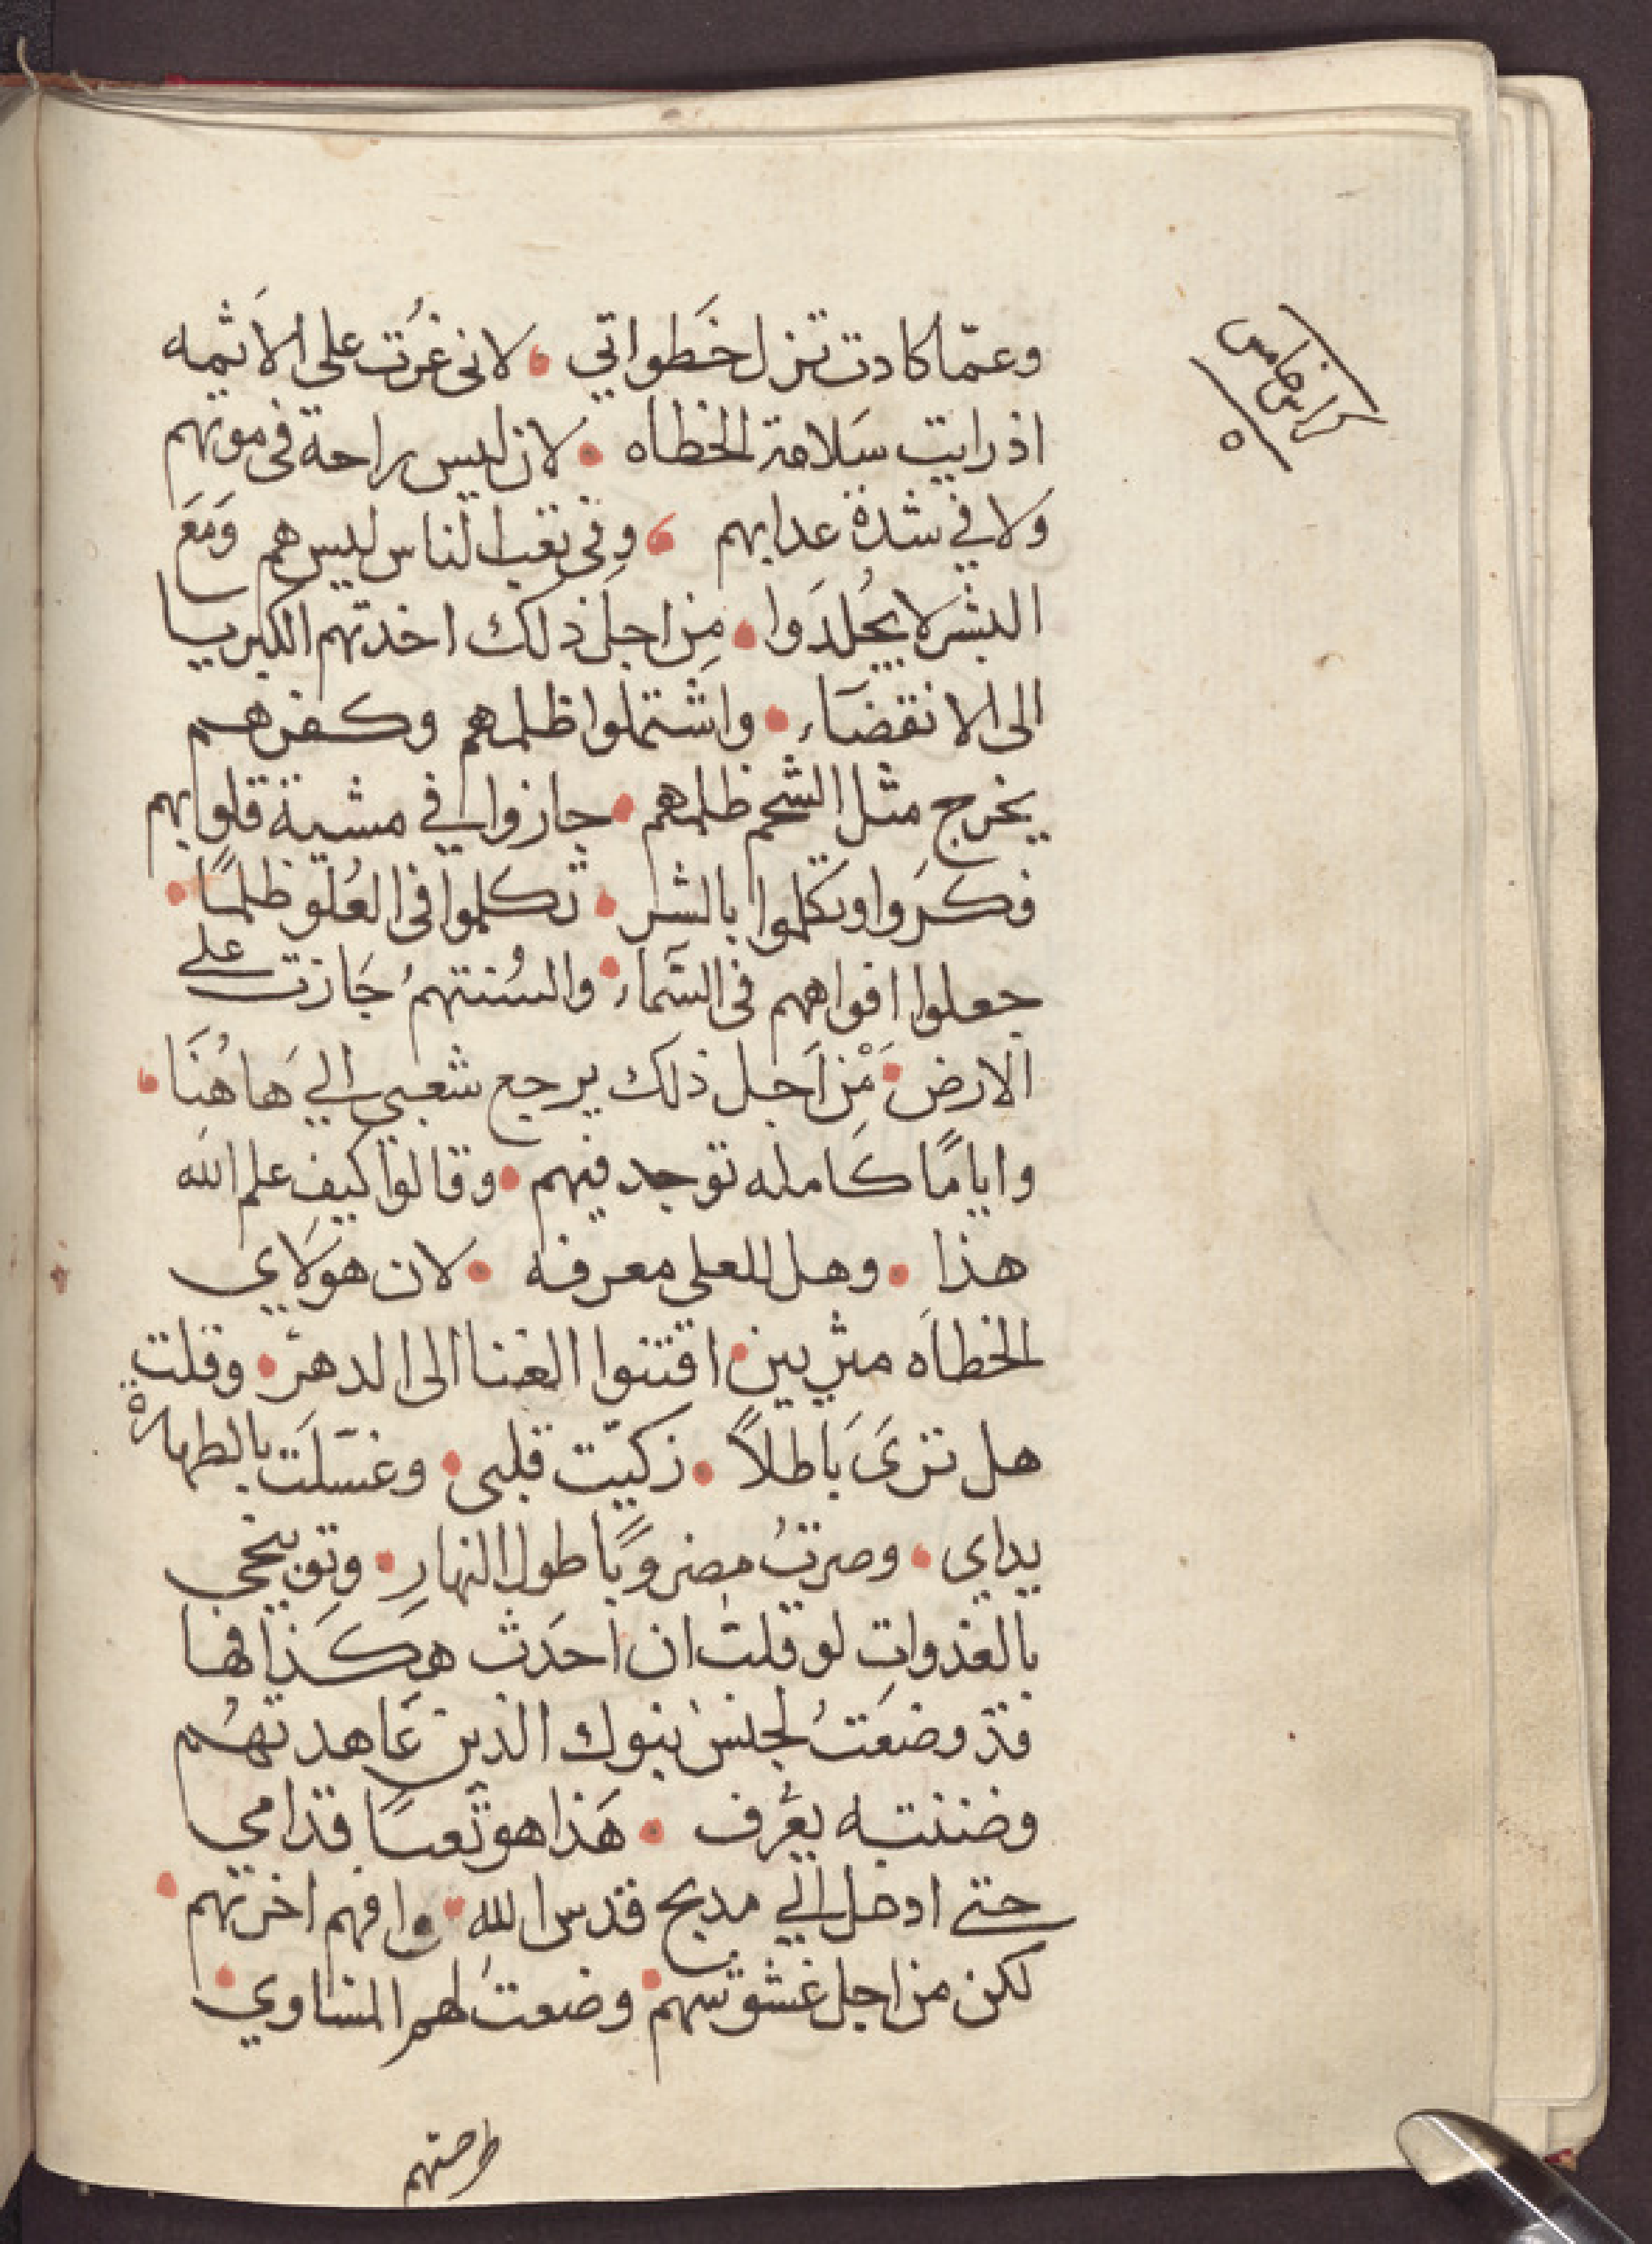 كراس خامس
٥
وعمّا كادت تزل خَطواتي ، لانى غرُت على الاَثمه
اذ رايت سَلامة الخطاه . لان ليس راحة فى موتهم
وَلا في شدة عدابهم ، وفى تعب الناس ليس هم وَمَعَ
البشر لا يُجلدَوا . مِن اجل ذلك اخدتهم الكبريا
الى الانقضآء . واشتملوا ظلمهم وكفرهم
يخرج مثل الشحم ظلمهم . جازوا في مشية قلوبهم
فكرَوا وتكلموا بالشر . تكلموا فى العُلو ظلمًا .
جعلوا افواههم فى السَّماء . والسُنتهمُ جَازت على
الارض . مْن اَجل ذلك يرجع شعبي الي هَاهُنَا .
واياَمًا كَامله توجد فيهم . وقالوا كيف علم الله
هذا . وهل للعلى معرفه . لان هولاَي
الخطاَه مثريين . اقتنوا الغنا الى الدهر . وقلت
هل تزىَ بَاطلاً . زكيّت قلبى . وغسَلَت بالطهارة
يداي . وصرتُ مضروبًا طول النهارِ . وتوبيخي
بالغذواتِ لو قلت ان احَدث هكَذا فها
قد وضعَتُ لجنس بنوك الذين عَاهدتهُم
وضننته يعُرف . هَذا هو تعبًا قدامي
حتى ادخل الي مدبح قدس اللهِ . وافهم اخرتهم .
لكن من اجل غشوشهم . وضعتَ لهم المساوي .
طرحتهم